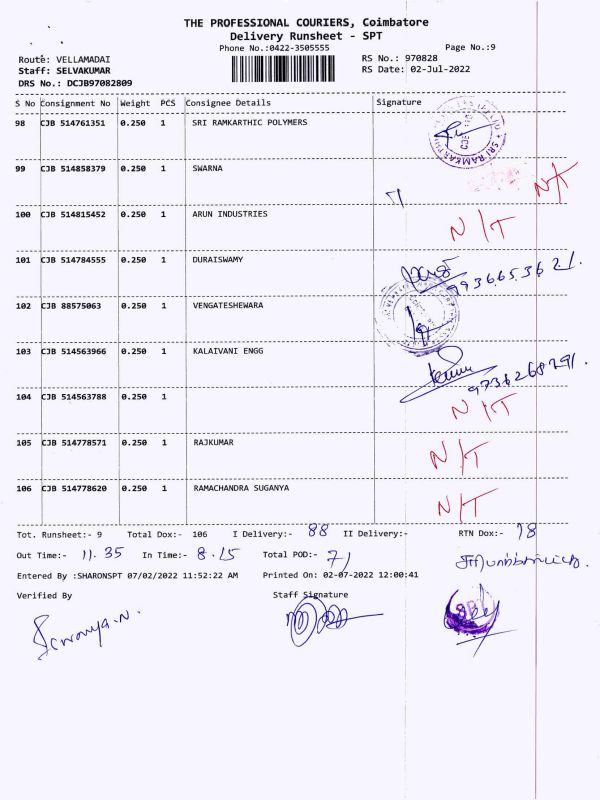 THE PROFESSIONAL COURIERS, Coimbatore
Delivery Runsheet - SPT
Phone No.:0422-3505555 Page No.:9
Route: VELLAMADAI RS No.: 970828
Staff: SELVAKUMAR RS Date: 02-Jul-2022
DRS No.: DCJB97082809
S No Consignment No Weight PCS Consignee Details Signature
98 CJB 514761351 0.250 1 SRI RAMKARTHIC POLYMERS
99 CJB 514858379 0.250 1 SWARNA N/T
100 CJB 514815452 0.250 1 ARUN INDUSTRIES N/T
101 CJB 514784555 0.250 1 DURAISWAMY 9936653621.
102 CJB 88575063 0.250 1 VENGATESHEWARA
103 CJB 514563966 0.250 1 KALAIVANI ENGG
104 CJB 514563788 0.250 1 N/T
105 CJB 514778571 0.250 1 RAJKUMAR N/T
106 CJB 514778620 0.250 1 RAMACHANDRA SUGANYA N/T
Tot. Runsheet:- 9 Total Dox:- 106 I Delivery:- 88 II Delivery:- RTN Dox:- 18
Out Time:- 11.35 In Time:- 8.15 Total POD:- 71
Entered By :SHARONSPT 07/02/2022 11:52:22 AM Printed On: 02-07-2022 12:00:41
Verified By Staff Signature